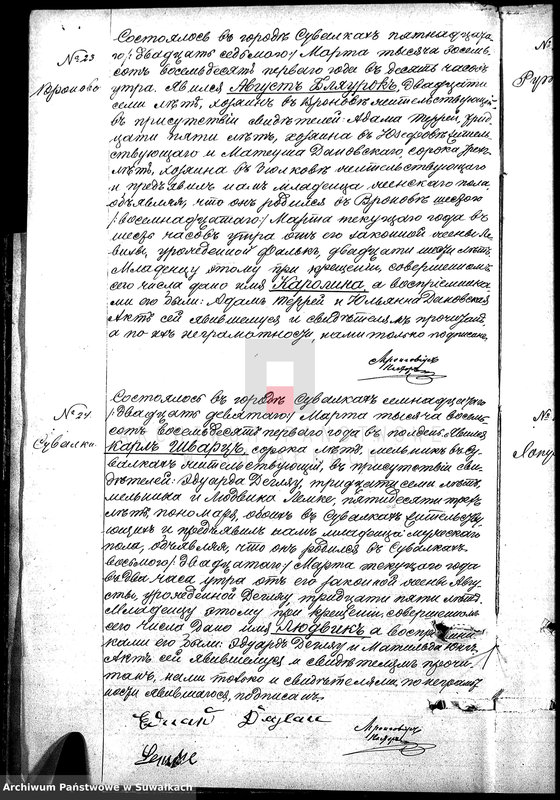 № 23
Вроново
Состоялось въ городѣ Сувалкахъ пятнадцата-
го /: двадцать седьмого :/ Марта тысяча восемь-
сотъ восемьдесятъ перваго года въ десять часовъ
утра. Явился Августъ двадцати
семи лѣтъ, хозяинъ въ Вроновѣ жительствующій
въ присутствіи свидѣтелей: Адама Террей, трид-
цати пяти лѣтъ, хозяина въ житель-
ствующаго и Матеуша Дановскаго, сорока трехъ
лѣтъ, хозяина въ жительствующаго
и предъявилъ намъ младенца женскаго пола,
объявляя, что онъ родился въ Вроновѣ шестого
/: восемнадцатаго :/ Марта текущаго года въ
шесть часовъ утра отъ его законной жены
урожденной Фалькъ, двадцати шести лѣтъ.
Младенцу этому при крещеніи, совершенномъ
сего числа дано имя Каролина, а воспріемника-
ми его были: Адамъ Террей и Юльянна Дановская
Актъ сей явившемуся и свидѣтелямъ прочитанъ,
а по ихъ неграмотности, нами только подписанъ.
№ 24
Сувалки
Состоялось въ городѣ Сувалкахъ семнадцатаго
/: двадцать девятаго :/ Марта тысяча восемь-
сотъ восемьдесятъ перваго года въ полдень. Явился
Карлъ Шварцъ, сорока лѣтъ, мельникъ въ Су-
валкахъ жительствующій, въ присутствіи сви-
дѣтелей: Эдуарда Дегляу, тридцати семи лѣтъ,
мельника и Людвика Лемке, пятидесяти трехъ
лѣтъ, пономаря, обоихъ въ Сувалкахъ жительству-
ющихъ и предъявилъ намъ младенца мужскаго
пола, объявляя, что онъ родился въ Сувалкахъ
восьмого /: двадцатаго :/ Марта текущаго года
въ два часа утра отъ его законной жены Авгу-
сты, урожденной Дегляу тридцати пяти лѣтъ.
Младенцу этому при крещеніи, совершенномъ
сего числа дано имя Людвикъ, а воспріемни-
ками его были: Эдуардъ Дегляу и Матильда
Актъ сей явившемуся и свидѣтелямъ прочи-
танъ, нами только и свидѣтелями, по неграмот-
ности явившагося, подписанъ.
Lemke
№
№
Archiwum Państwowe w Suwałkach